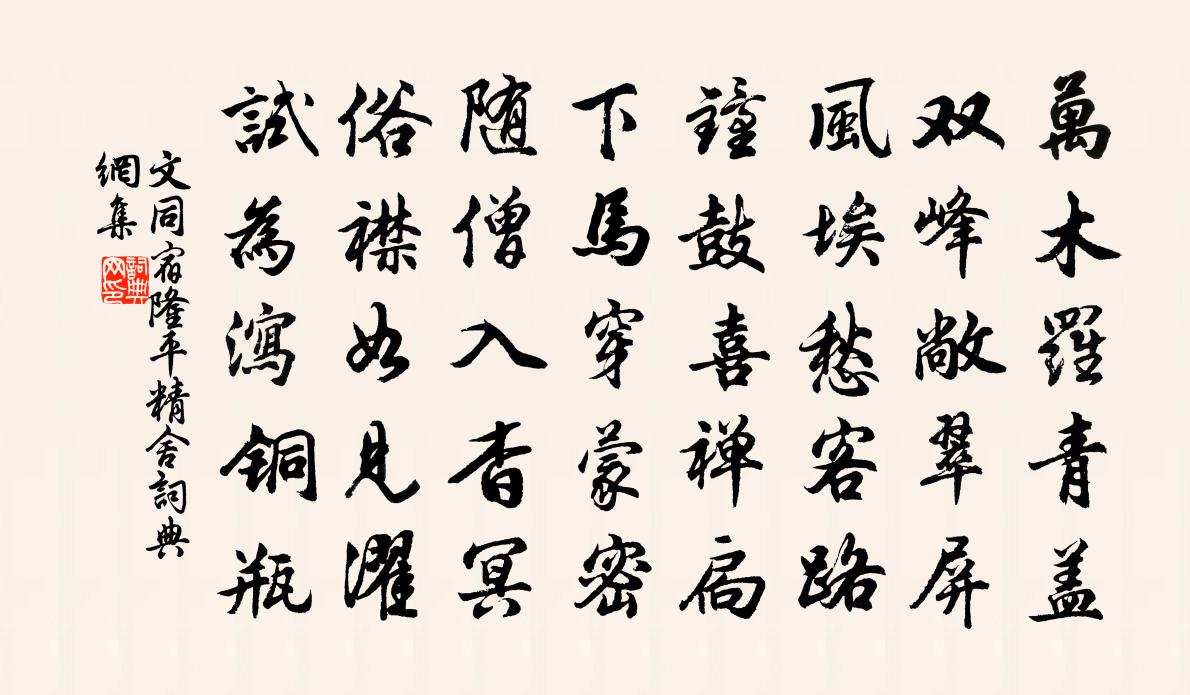 萬木羅青盖
双峰敞翠屏
風埃愁客路
鐘鼓喜禅扃
下馬穿蒙密
随僧入杳冥
俗襟如見濯
試為瀉銅瓶
文同宿隆平精舍詞典
網集
詞典
网印